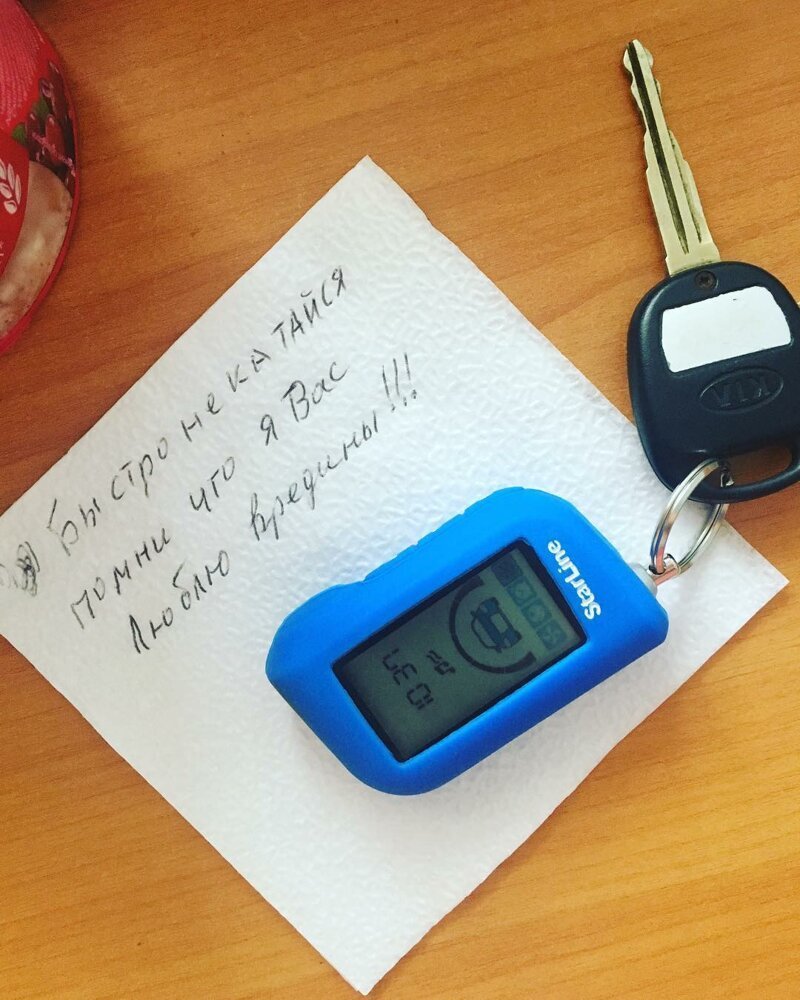 Быстро не катайся
помни что я Вас
люблю вредины!!!
StarLine
KIA